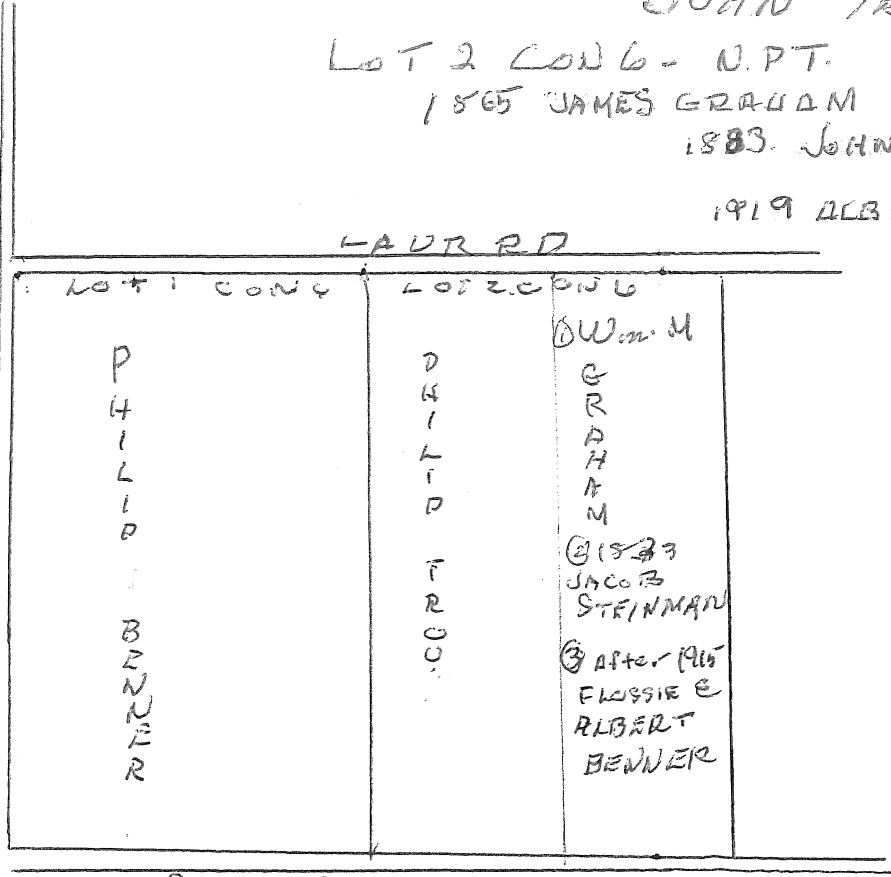 JOHN
LOT 2 CON 6 - N. P T.
1865 JAMES GRAHAM
1883. JOHN
1919 ALB
LAUR RD
LOT 1 CON 6
LOT 2. CON 6
PHILIP BENNER
PHILIP TROU.
① Wm. M
GRAHAM
② 1883
JACOB
STEINMAN
③ After 1915
FLOSSIE &
ALBERT
BENNER